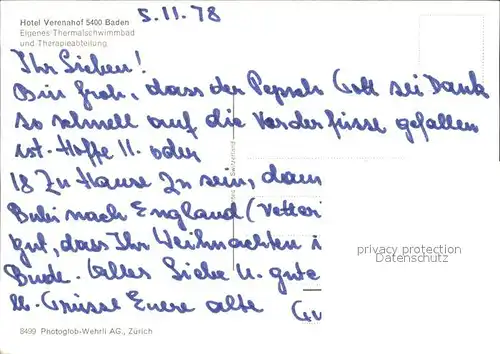 Hotel Verenahof 5400 Baden
Eigenes Thermalschwimmbad
und Therapieabteilung
5.11.78
Ihr Lieben!
Bin froh, dass der Gott sei Dank
so schnell auf die Vorderfüsse gefallen
ist. Hoffe 11. oder
18 Zu Hause zu sein, dann
Bubi nach England (Vetter
gut, dass Ihr Weihnachten i
Bude. Alles Liebe u. gute
Grüsse Euere alte
privacy protection
Datenschutz
8499 Photoglob-Wehrli AG., Zürich